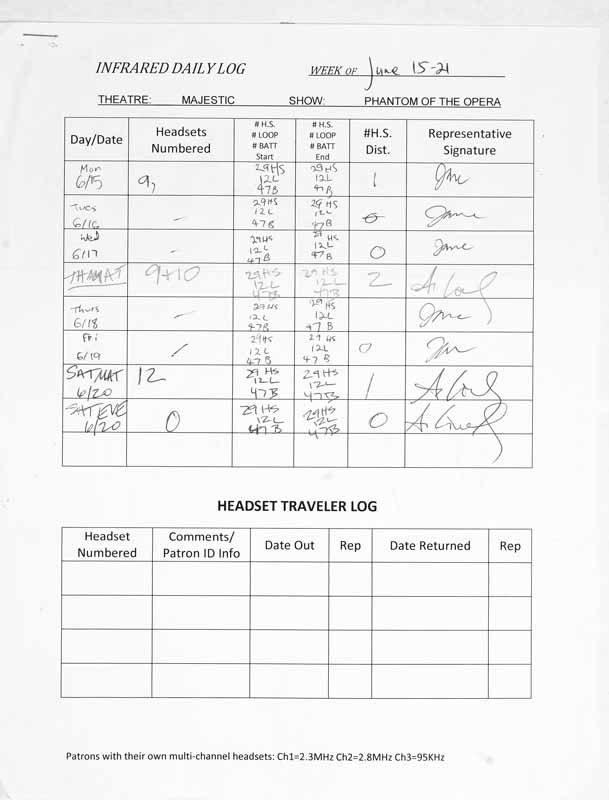 INFRARED DAILY LOG WEEK OF June 15-21
THEATRE: MAJESTIC SHOW: PHANTOM OF THE OPERA
Day/Date Headsets Numbered # H.S. # LOOP # BATT Start # H.S. # LOOP # BATT End #H.S. Dist. Representative Signature
Mon 6/15 9, 29HS 12L 47B 29HS 12L 47B 1
Tues 6/16 — 29HS 12L 47B 29HS 12L 47B 0 Jane
Wed 6/17 — 29HS 12L 47B 29 HS 12L 47B 0 Jane
TH MAT 9+10 29HS 12L 47B 29 HS 12L 47B 2
Thurs 6/18 — 29HS 12L 47B 29 HS 12L 47 B
Fri 6/19 / 29HS 12L 47B 29 HS 12L 47 B 0
SAT MAT 6/20 12 29 HS 12L 47B 29HS 12L 47B 1
SAT EVE 6/20 0 29HS 12L 47B 29HS 12L 47B 0
HEADSET TRAVELER LOG
Headset Numbered Comments/ Patron ID Info Date Out Rep Date Returned Rep
Patrons with their own multi-channel headsets: Ch1=2.3MHz Ch2=2.8MHz Ch3=95KHz